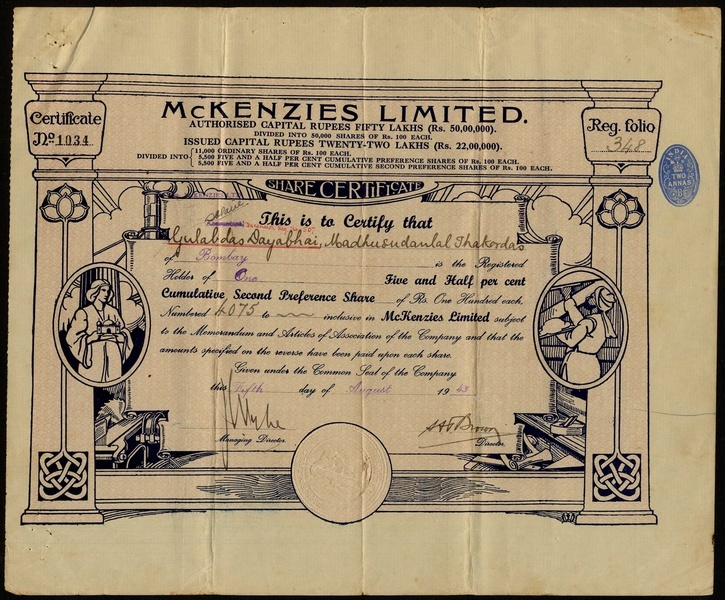 McKENZIES LIMITED.
AUTHORISED CAPITAL RUPEES FIFTY LAKHS (Rs. 50,00,000).
DIVIDED INTO 50,000 SHARES OF Rs. 100 EACH.
ISSUED CAPITAL RUPEES TWENTY-TWO LAKHS (Rs. 22,00,000).
DIVIDED INTO { 11,000 ORDINARY SHARES OF Rs. 100 EACH.
5,500 FIVE AND A HALF PER CENT CUMULATIVE PREFERENCE SHARES OF Rs. 100 EACH.
5,500 FIVE AND A HALF PER CENT CUMULATIVE SECOND PREFERENCE SHARES OF Rs. 100 EACH.
Certificate
No. 1034
Reg. folio
348
INDIA
TWO
ANNAS
SHARE CERTIFICATE
This is to Certify that
Gulabdas Dayabhai, Madhusudanlal Thakordas
of Bombay is the Registered
Holder of One Five and Half per cent
Cumulative Second Preference Share of Rs. One Hundred each.
Numbered 4075 to inclusive in McKenzies Limited subject
to the Memorandum and Articles of Association of the Company and that the
amounts specified on the reverse have been paid upon each share.
Given under the Common Seal of the Company
this Fifth day of August 1943
Managing Director.
Director.